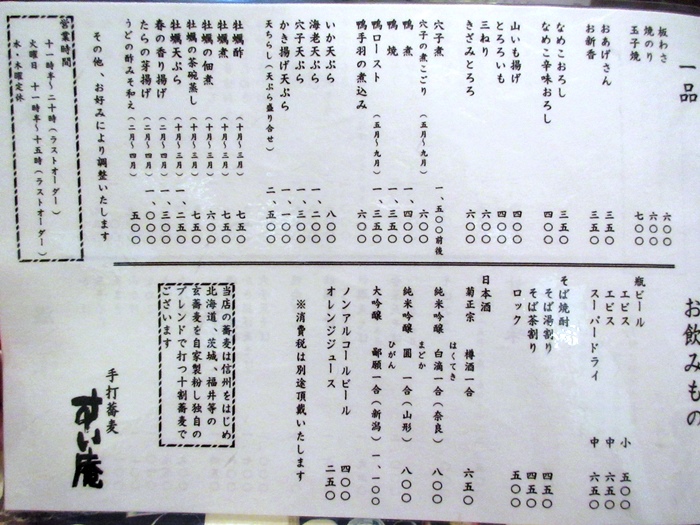 一品
板わさ 六〇〇
焼のり 六〇〇
玉子焼 七〇〇
おあげさん 三五〇
お新香 三五〇
なめこおろし 三五〇
なめこ辛味おろし 四〇〇
山いも揚げ 四〇〇
とろろいも 四〇〇
三ねり 六〇〇
きざみとろろ 六〇〇
穴子煮 一、五〇〇前後
穴子の煮こごり（五月〜九月） 六〇〇
鴨 煮 一、四〇〇
鴨 焼 一、三五〇
鴨ロースト（五月〜九月） 一、三五〇
鴨手羽の煮込み 六〇〇
いか天ぷら 八〇〇
海老天ぷら 一、二〇〇
穴子天ぷら 一、三〇〇
かき揚げ天ぷら 一、一〇〇
天ちらし（天ぷら盛り合せ） 二、五〇〇
牡蠣酢（十月〜三月） 七五〇
牡蠣煮（十月〜三月） 七五〇
牡蠣の佃煮（十月〜三月） 六〇〇
牡蠣の茶碗蒸し（十月〜三月） 七五〇
牡蠣天ぷら（十月〜三月） 一、二五〇
春の香り揚げ（二月〜四月） 一、三〇〇
たらの芽揚げ（二月〜四月） 一、〇〇〇
うどの酢みそ和え（二月〜四月） 五〇〇
その他、お好みにより調整いたします
営業時間
十一時半〜二十時（ラストオーダー）
火曜日 十一時半〜十五時（ラストオーダー）
水・木曜定休
お飲みもの
瓶ビール
エビス 小 五〇〇
エビス 中 六五〇
スーパードライ 中 六五〇
そば焼酎
そば湯割り 四五〇
そば茶割り 四五〇
ロック 五〇〇
日本酒
菊正宗 樽酒一合 六五〇
はくてき
純米吟醸 白滴一合（奈良） 八〇〇
まどか
純米吟醸 圓 一合（山形） 八〇〇
ひがん
大吟醸 鄙願一合（新潟） 一、一〇〇
ノンアルコールビール 四〇〇
オレンジジュース 二五〇
※消費税は別途頂戴いたします
当店の蕎麦は信州をはじめ
北海道、茨城、福井等の
玄蕎麦を自家製粉し独自の
ブレンドで打つ十割蕎麦で
ございます
手打蕎麦
すい庵